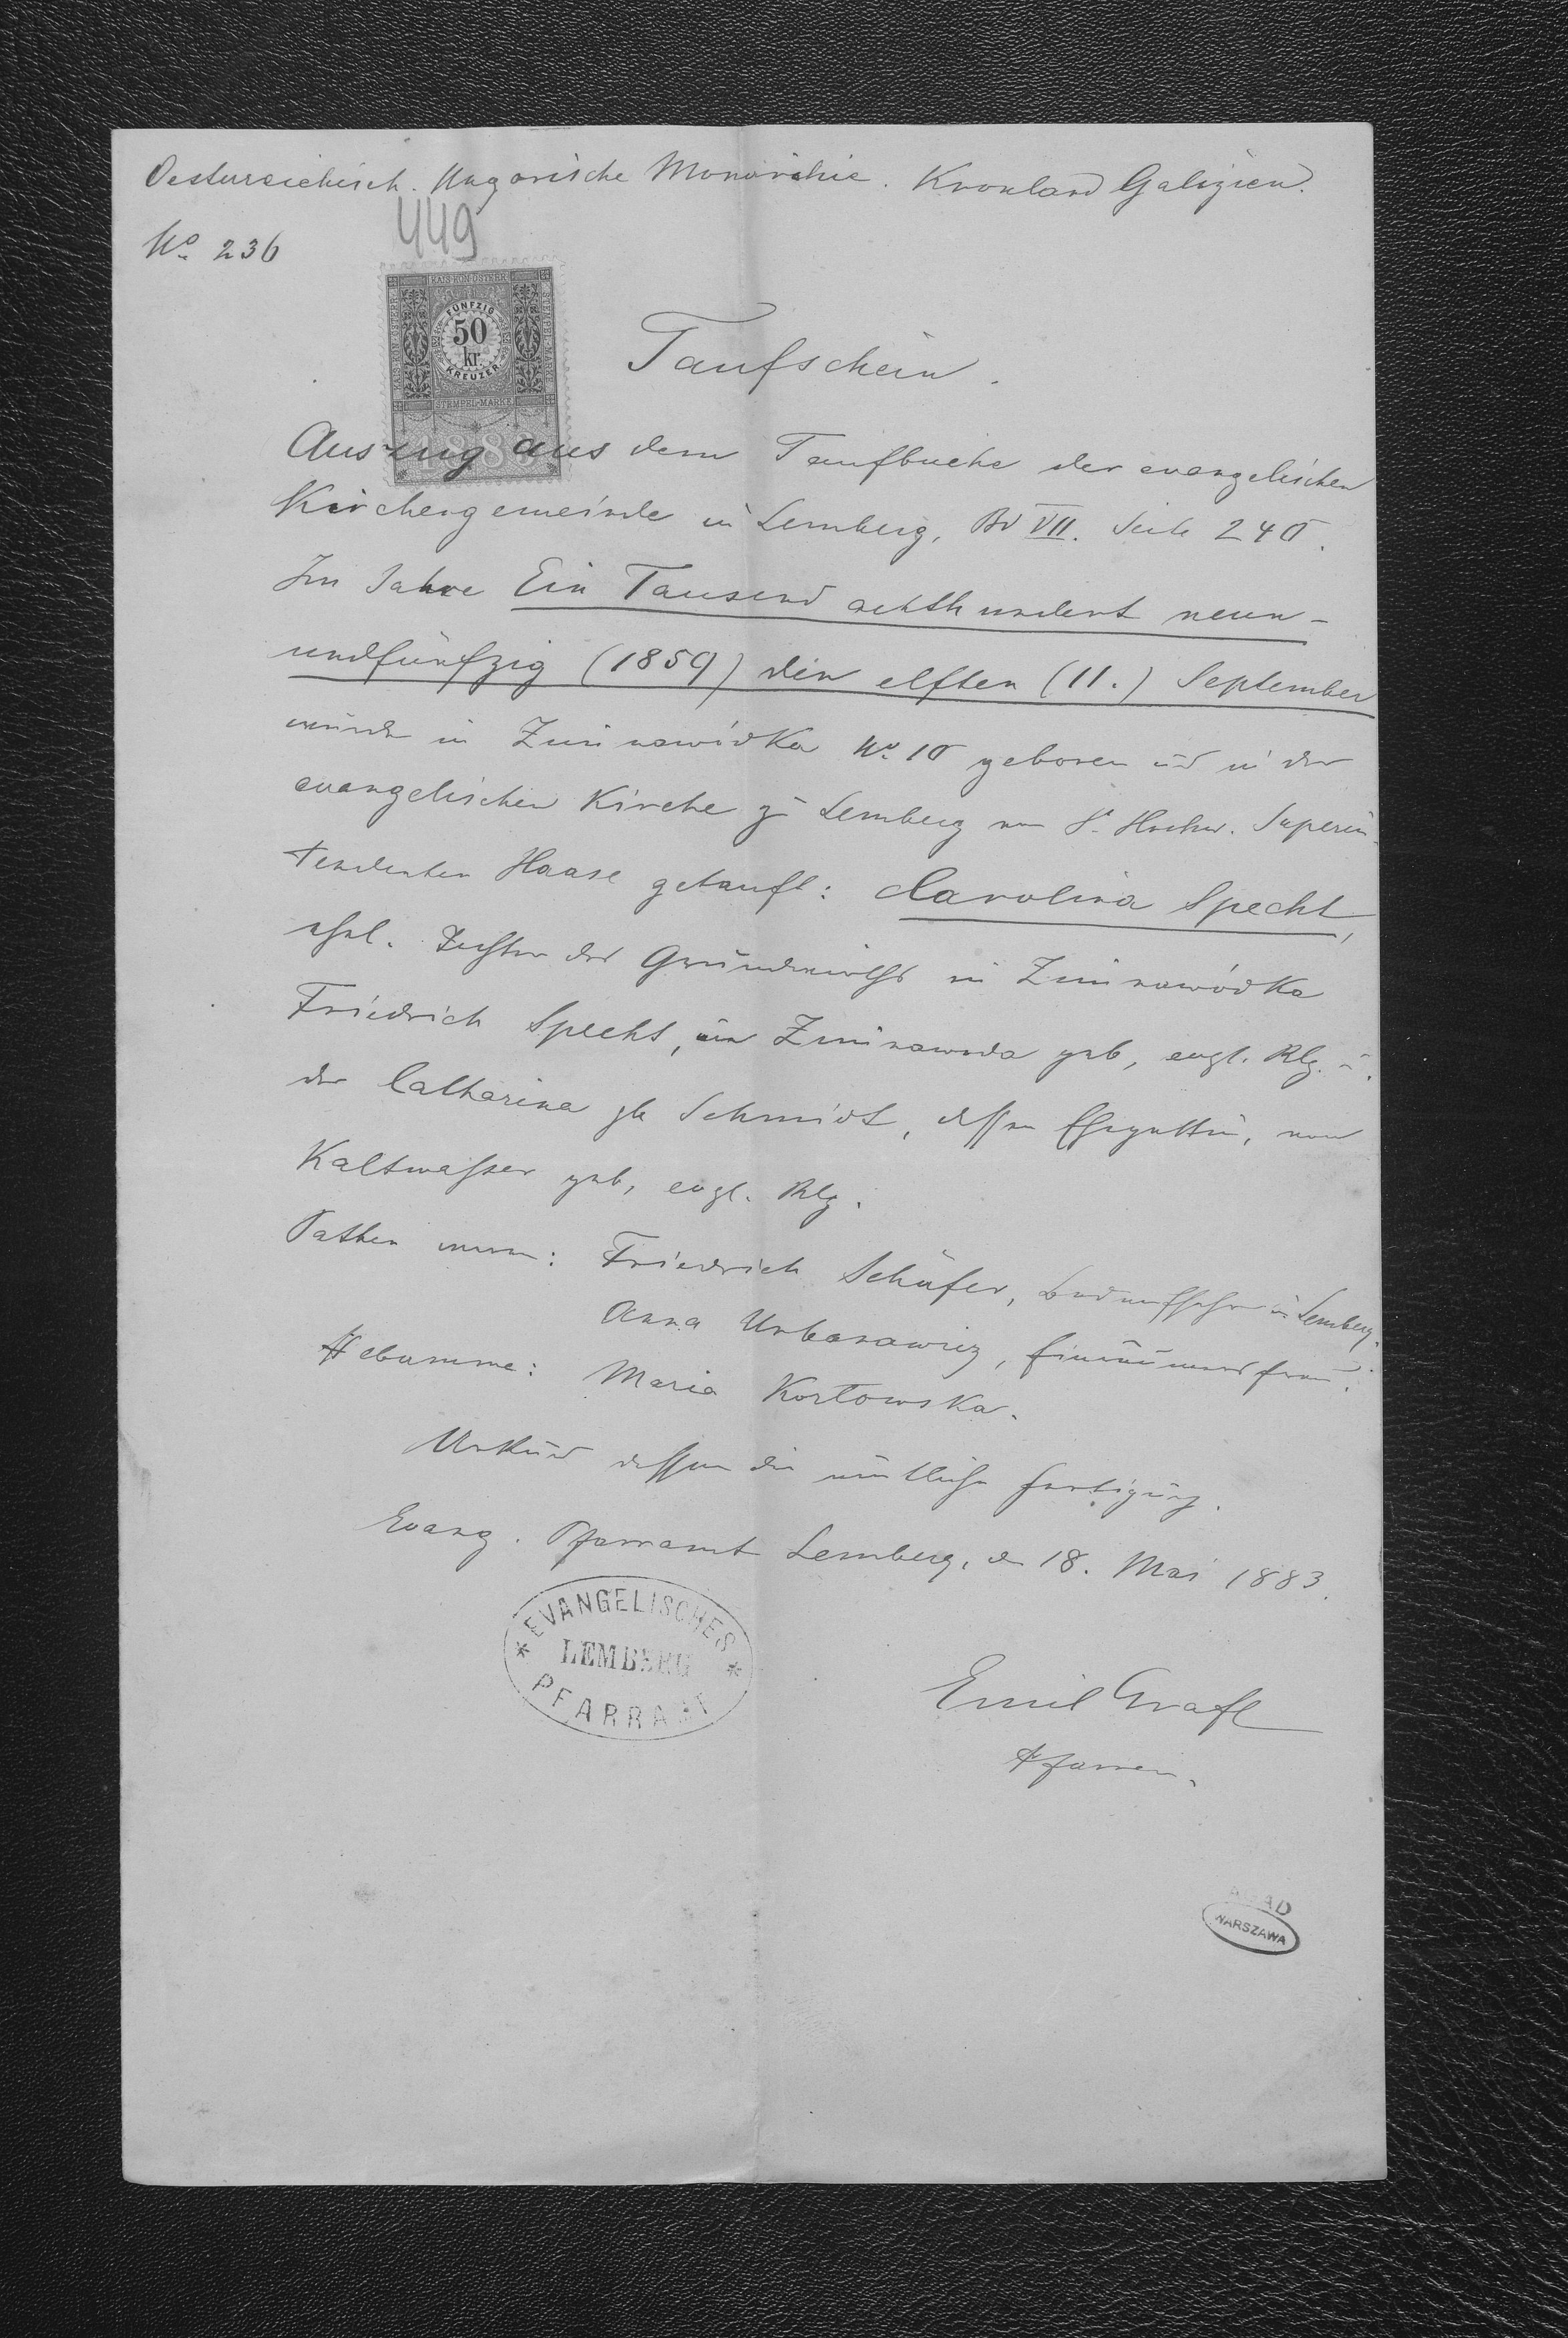 Oesterreichisch. Ungarische Monarchie. Kronland Galizien.
449
No. 236
KAIS·KÖN·ÖSTERR
FÜNFZIG
50
kr.
KREUZER
STEMPEL-MARKE
1883
Taufschein.
Auszug aus dem Taufbuche der evangelischen
Kirchengemeinde in Lemberg, Bd VII. Seite 240.
Im Jahre Ein Tausend achthundert neun-
undfünfzig (1859) den elften (11.) September
wurde in Zimnawódka No. 10 geboren und in der
evangelischen Kirche zu Lemberg von Sr. Hochw. Superin-
tendenten Haase getauft: Carolina Specht,
ehel. Tochter des Grundwirths in Zimnawódka
Friedrich Specht, in Zimnawoda geb, evgl. Rlg. u.
der Catharina gb Schmidt, dessen Ehegattin, von
Kaltwasser geb, evgl. Rlg.
Pathen waren: Friedrich Schäfer, in Lemberg.
Anna Urbanawicz,
Hebamme: Maria Kozłowska.
Urkund dessen die amtliche Fertigung.
Evang. Pfarramt Lemberg, d 18. Mai 1883.
EVANGELISCHES
LEMBERG
PFARRAMT
Emil Grafl
Pfarrer.
AGAD
WARSZAWA